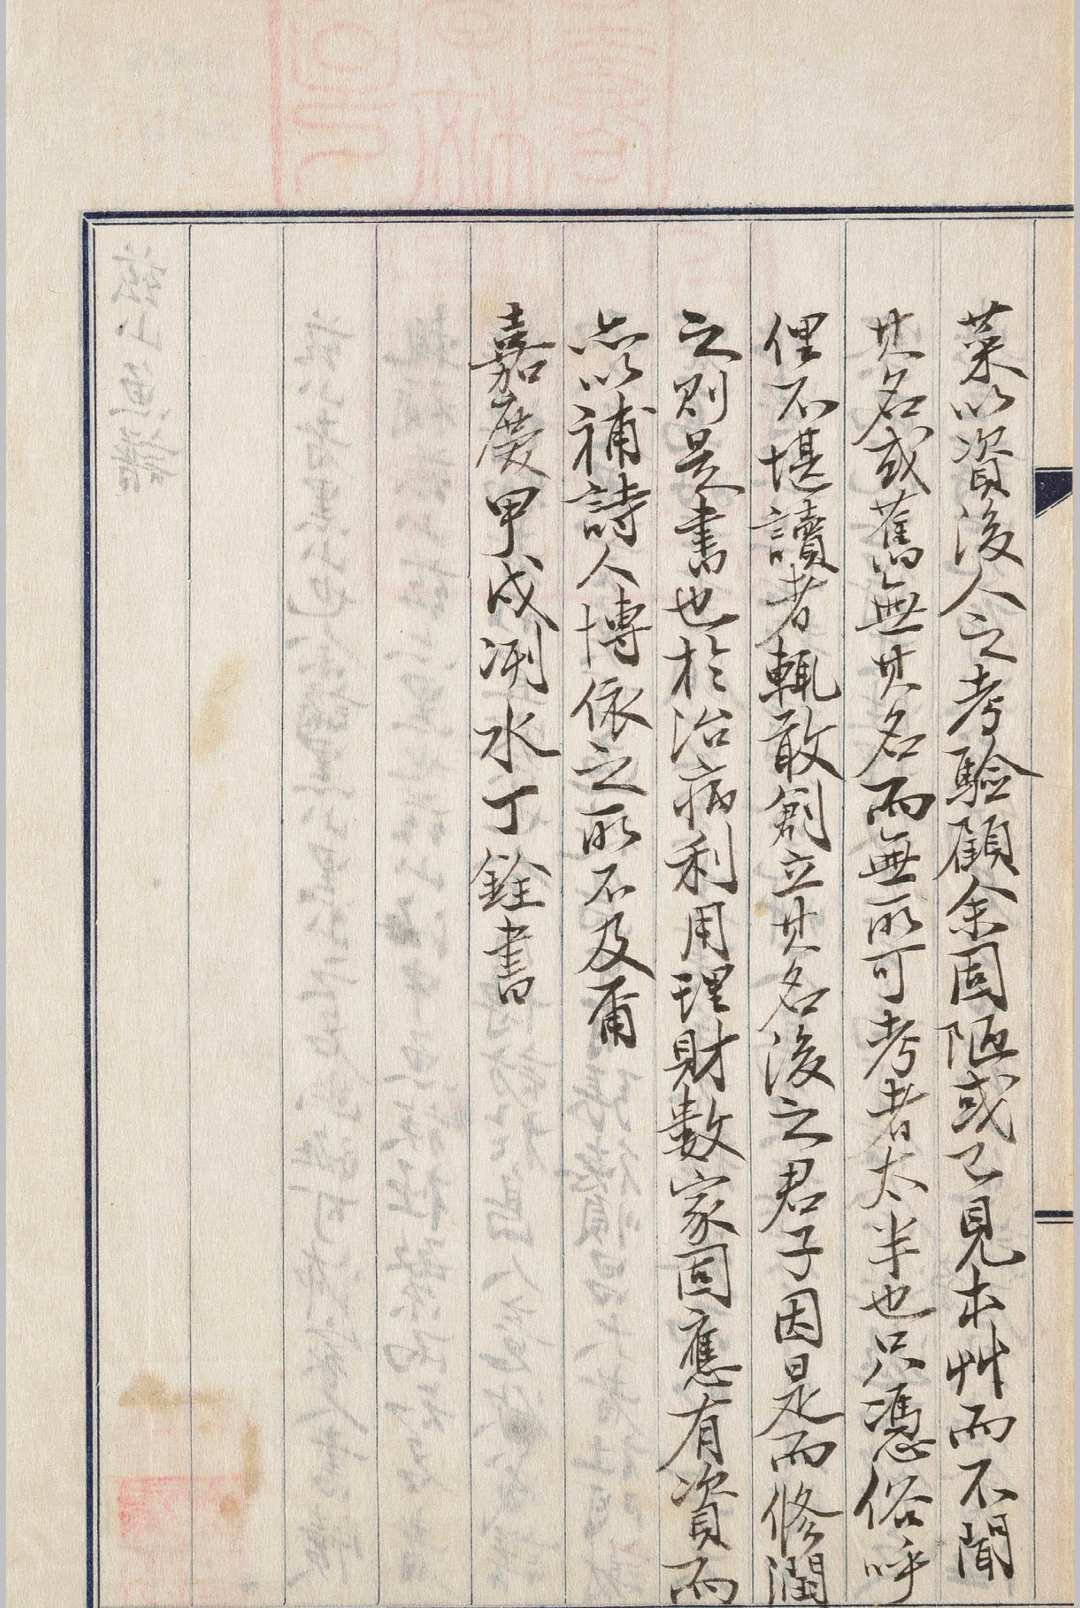 菜以資後人之考驗顧余固陋或已見本艸而不聞
其名或舊無其名而無所可考者太半也只憑俗呼
俚不堪讀者輒敢創立其名後之君子因是而修潤
之則是書也於治病利用理財數家固應有資而
亦以補詩人博依之所不及爾
嘉慶甲戌洌水丁銓書